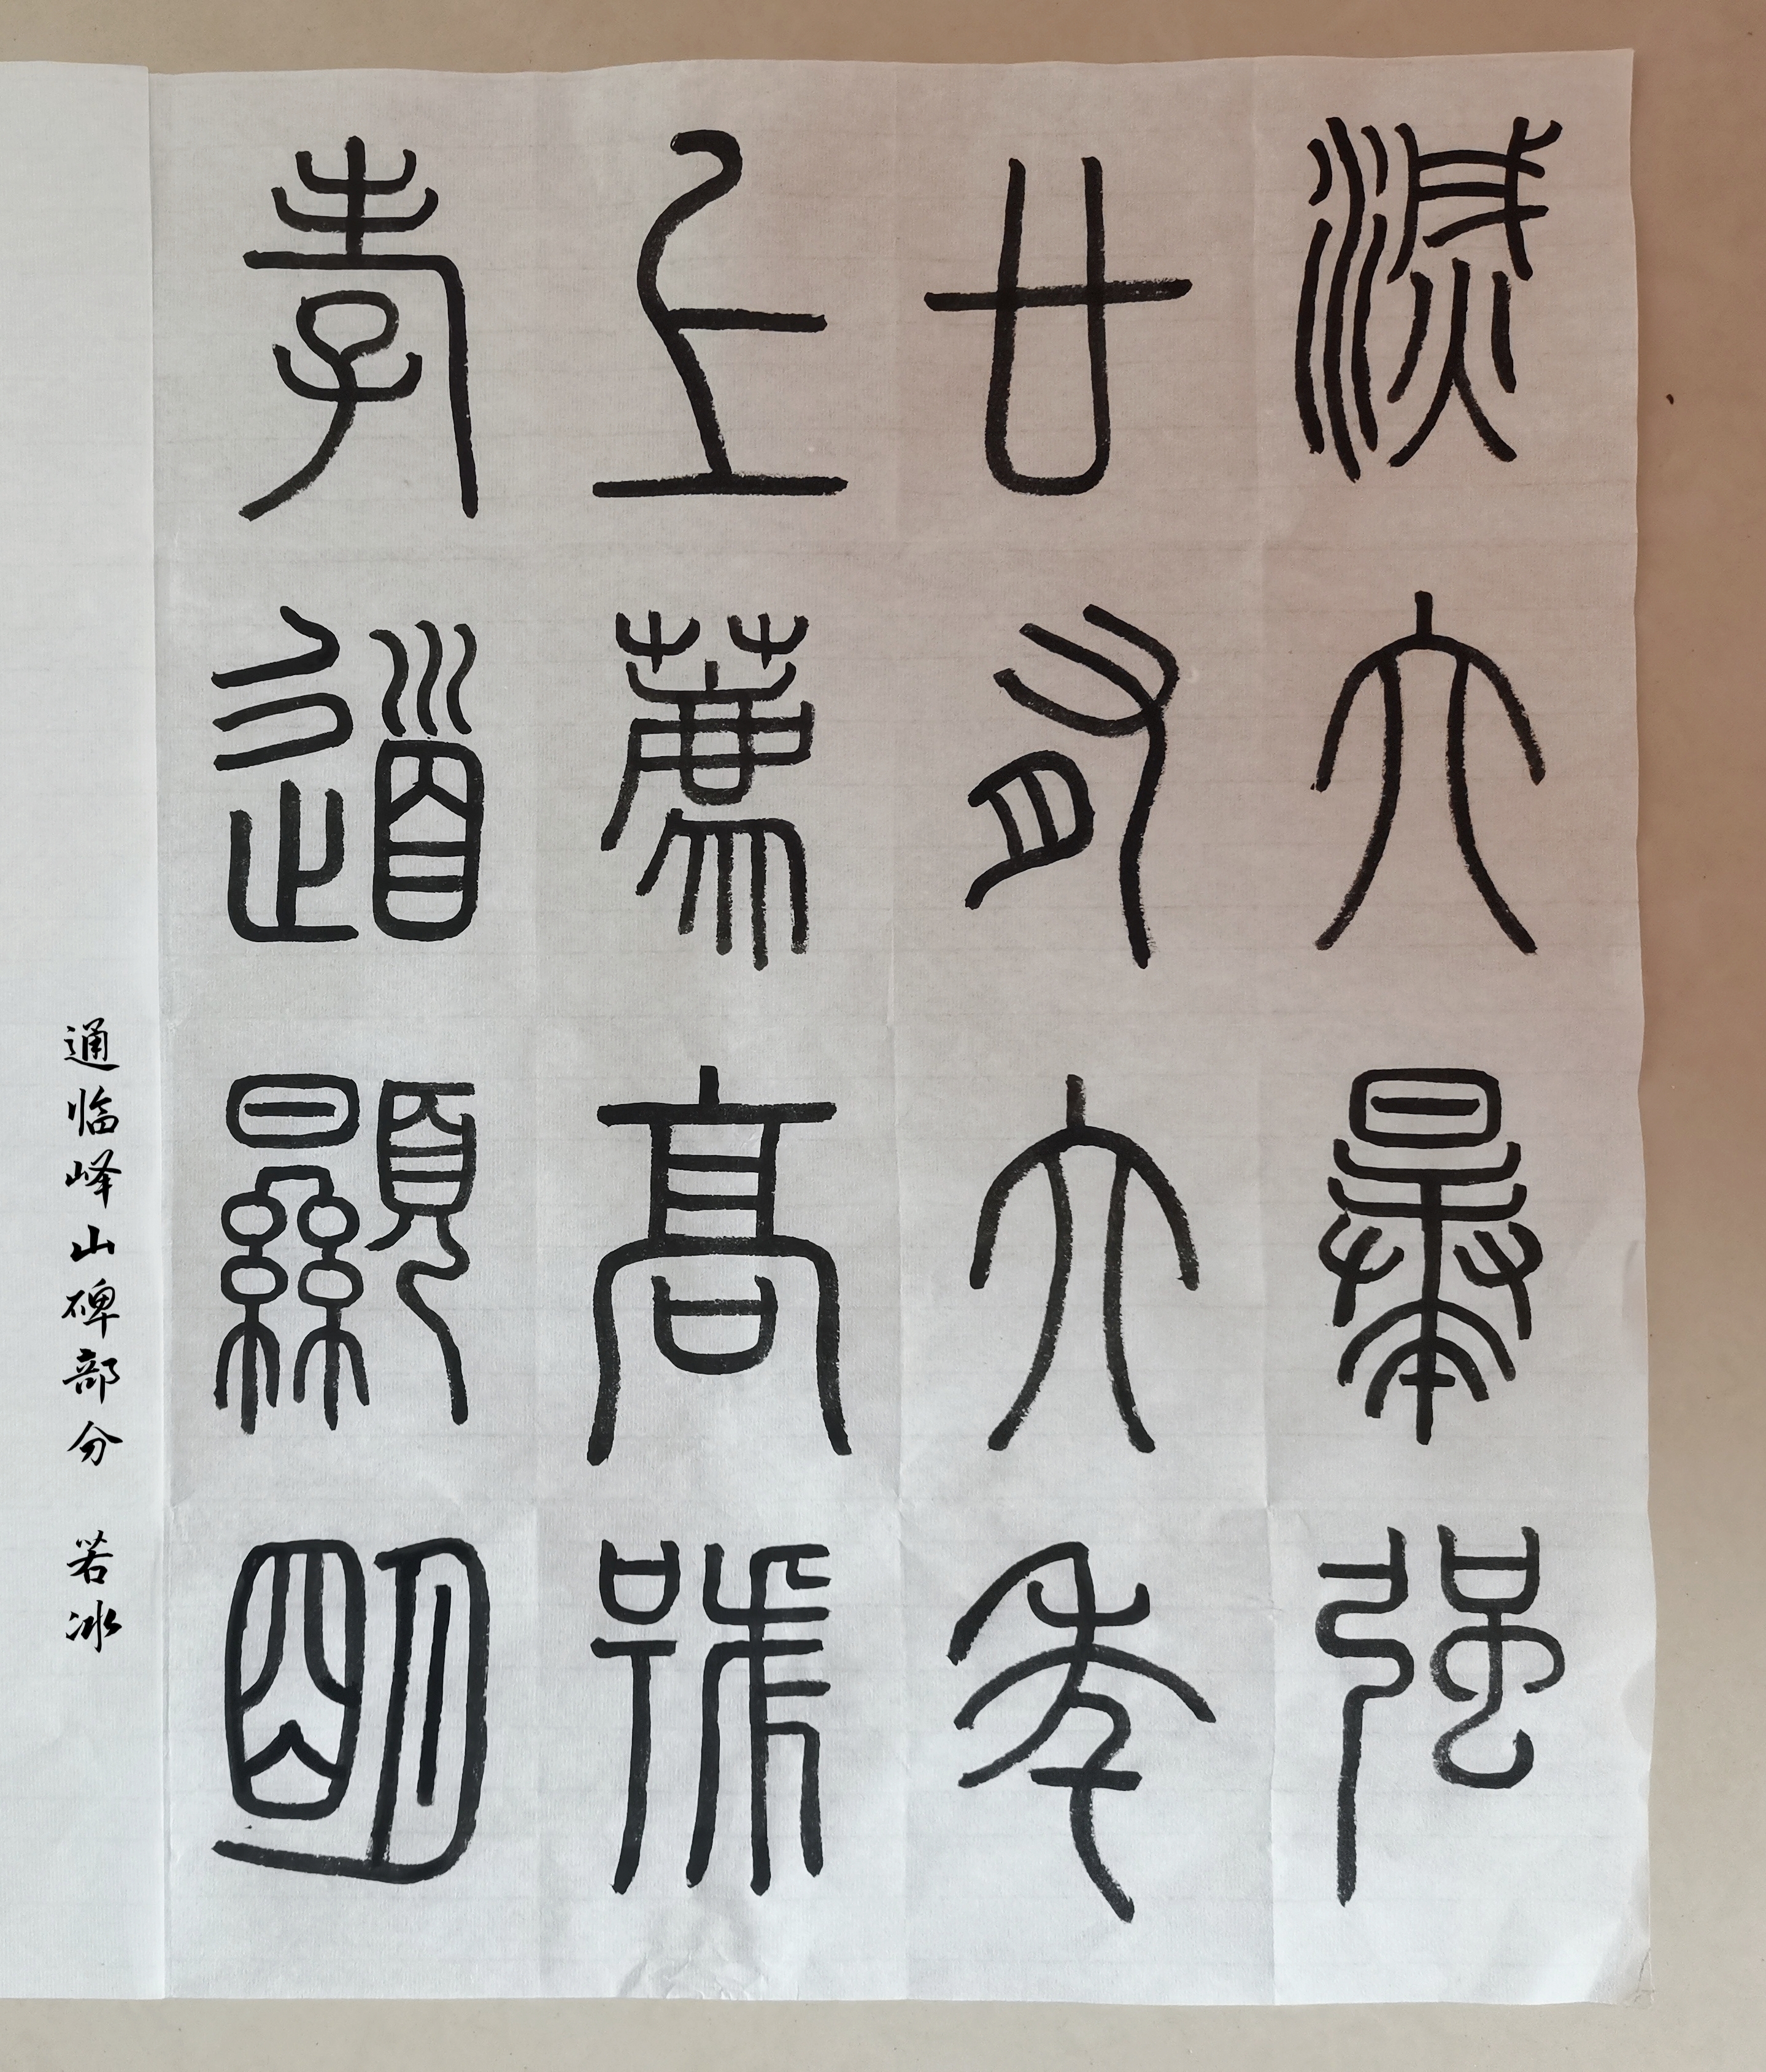 滅六暴强
廿有六年
上薦高號
孝道顯明
通临峄山碑部分 若冰